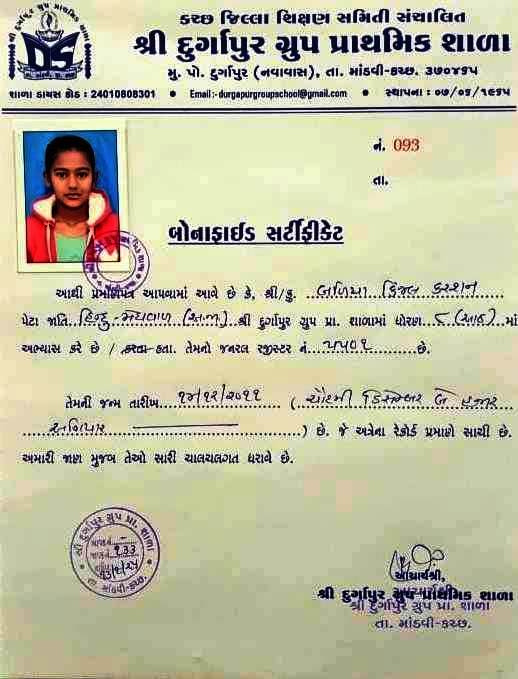 કચ્છ જિલ્લા શિક્ષણ સમિતી સંચાલિત
શ્રી દુર્ગાપુર ગ્રુપ પ્રાથમિક શાળા
મુ. પો. દુર્ગાપુર (નવાવાસ), તા. માંડવી-કચ્છ. ૩૭૦૪૬૫
શાળા ડાયસ કોડ : 24010808301 • Email:-durgapurgroupschool@gmail.com • સ્થાપના : ૦૭/૦૬/૧૯૬૫
નં. 093
તા.
બોનાફાઈડ સર્ટીફીકેટ
આથી પ્રમાણપત્ર આપવામાં આવે છે કે, શ્રી/કુ. કિંજલ કરશન
પેટા જાતિ હિન્દુ-મારવાડા (અ.જા) શ્રી દુર્ગાપુર ગ્રુપ પ્રા. શાળામાં ધોરણ ૮ (આઠ) માં
અભ્યાસ કરે છે / કરતા હતા. તેમનો જનરલ રજીસ્ટર નં. છે.
તેમની જન્મ તારીખ ૧૪/૧૨/૨૦૧૧ (ચૌદમી ડિસેમ્બર બે હજાર
અગિયાર) છે. જે અત્રેના રેકોર્ડ પ્રમાણે સાચી છે.
અમારી જાણ મુજબ તેઓ સારી ચાલચલગત ધરાવે છે.
શ્રી દુર્ગાપુર ગ્રુપ પ્રા. શાળા
તા. માંડવી-કચ્છ.
આચાર્યશ્રી,
શ્રી દુર્ગાપુર ગ્રુપ પ્રાથમિક શાળા
શ્રી દુર્ગાપુર ગ્રુપ પ્રા. શાળા
તા. માંડવી-કચ્છ.